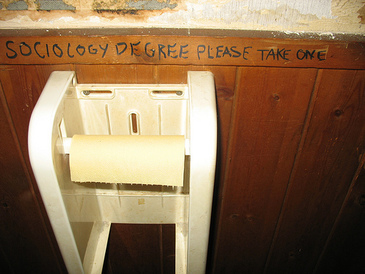 SOCIOLOGY DEGREE PLEASE TAKE ONE